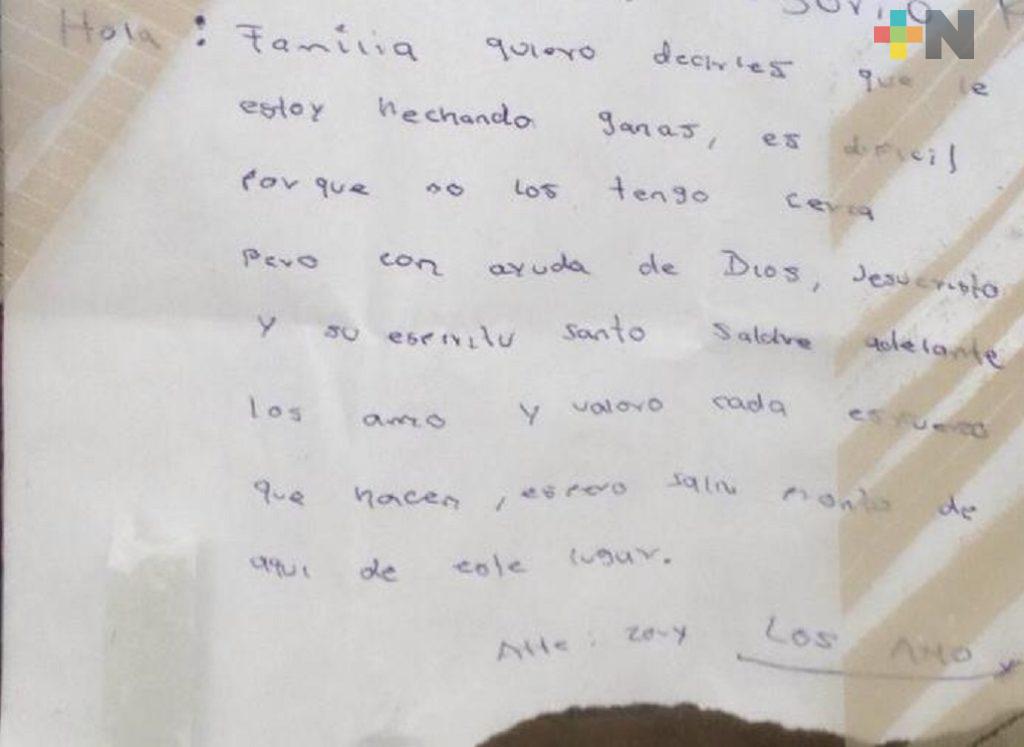 +N
Hola : Familia quiero decirles que le
estoy hechando ganas, es dificil
Porque no los tengo cerca
Pero con ayuda de Dios, Jesucristo
y su espiritu santo saldre adelante
los amo y valoro cada esfuerzo
que hacen, espero salir pronto de
aqui de este lugar.
Atte: Los AMO